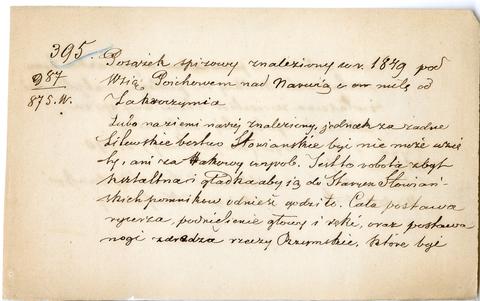 395.
987
875.W.
Posążek spiżowy znaleziony w r. 1849 pod
Wsią Poichowem nad Narwią w milę od
Zakroczymia
Lubo na ziemi naszej znaleziony, jednak za żadne
Litewskie bóstwo Słowiańskie być nie może wzię
ty, ani za takowy wyrób. Jest to robota zbyt
kształtna i gładka aby ją do Starych Słowiań
skich pomników odnieść godziło. Cała postawa
rycerza, podniesienie głowy i ręki, oraz postawa
nogi zdradza rzeczy Rzymskie, które być